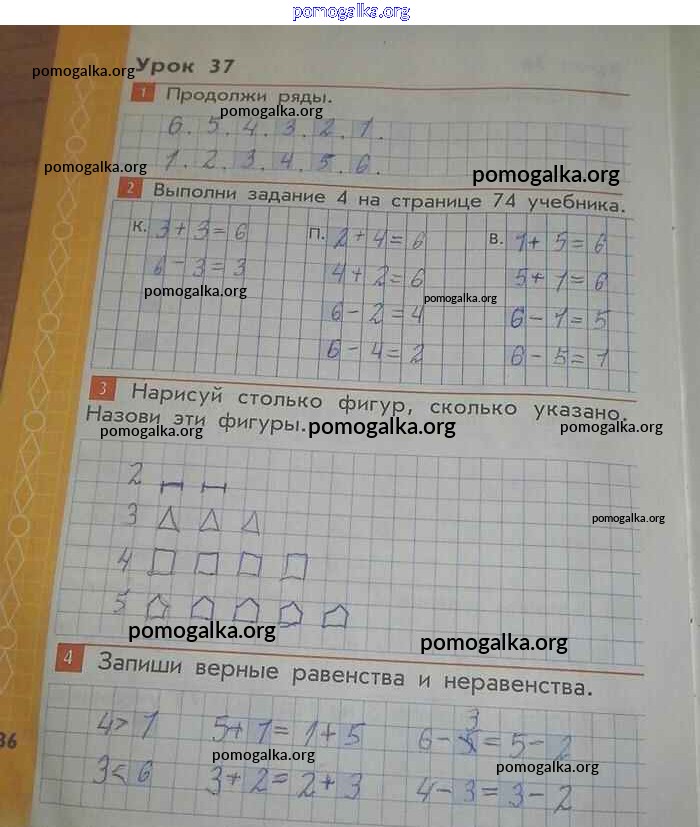 pomogalka.org
Урок 37
pomogalka.org
1 Продолжи ряды.
pomogalka.org
6. 5. 4. 3. 2. 1.
1. 2. 3. 4. 5. 6.
pomogalka.org pomogalka.org
2 Выполни задание 4 на странице 74 учебника.
К. 3+3=6 П. 2+4=6 В. 1+5=6
6-3=3 4+2=6 5+1=6
pomogalka.org pomogalka.org
6-2=4 6-1=5
6-4=2 6-5=1
3 Нарисуй столько фигур, сколько указано.
Назови эти фигуры.
pomogalka.org pomogalka.org pomogalka.org
2
3
pomogalka.org
4
5
pomogalka.org pomogalka.org
4 Запиши верные равенства и неравенства.
4>1 5+1=1+5 6-3=5-2
36
pomogalka.org pomogalka.org
3<6 3+2=2+3 4-3=3-2